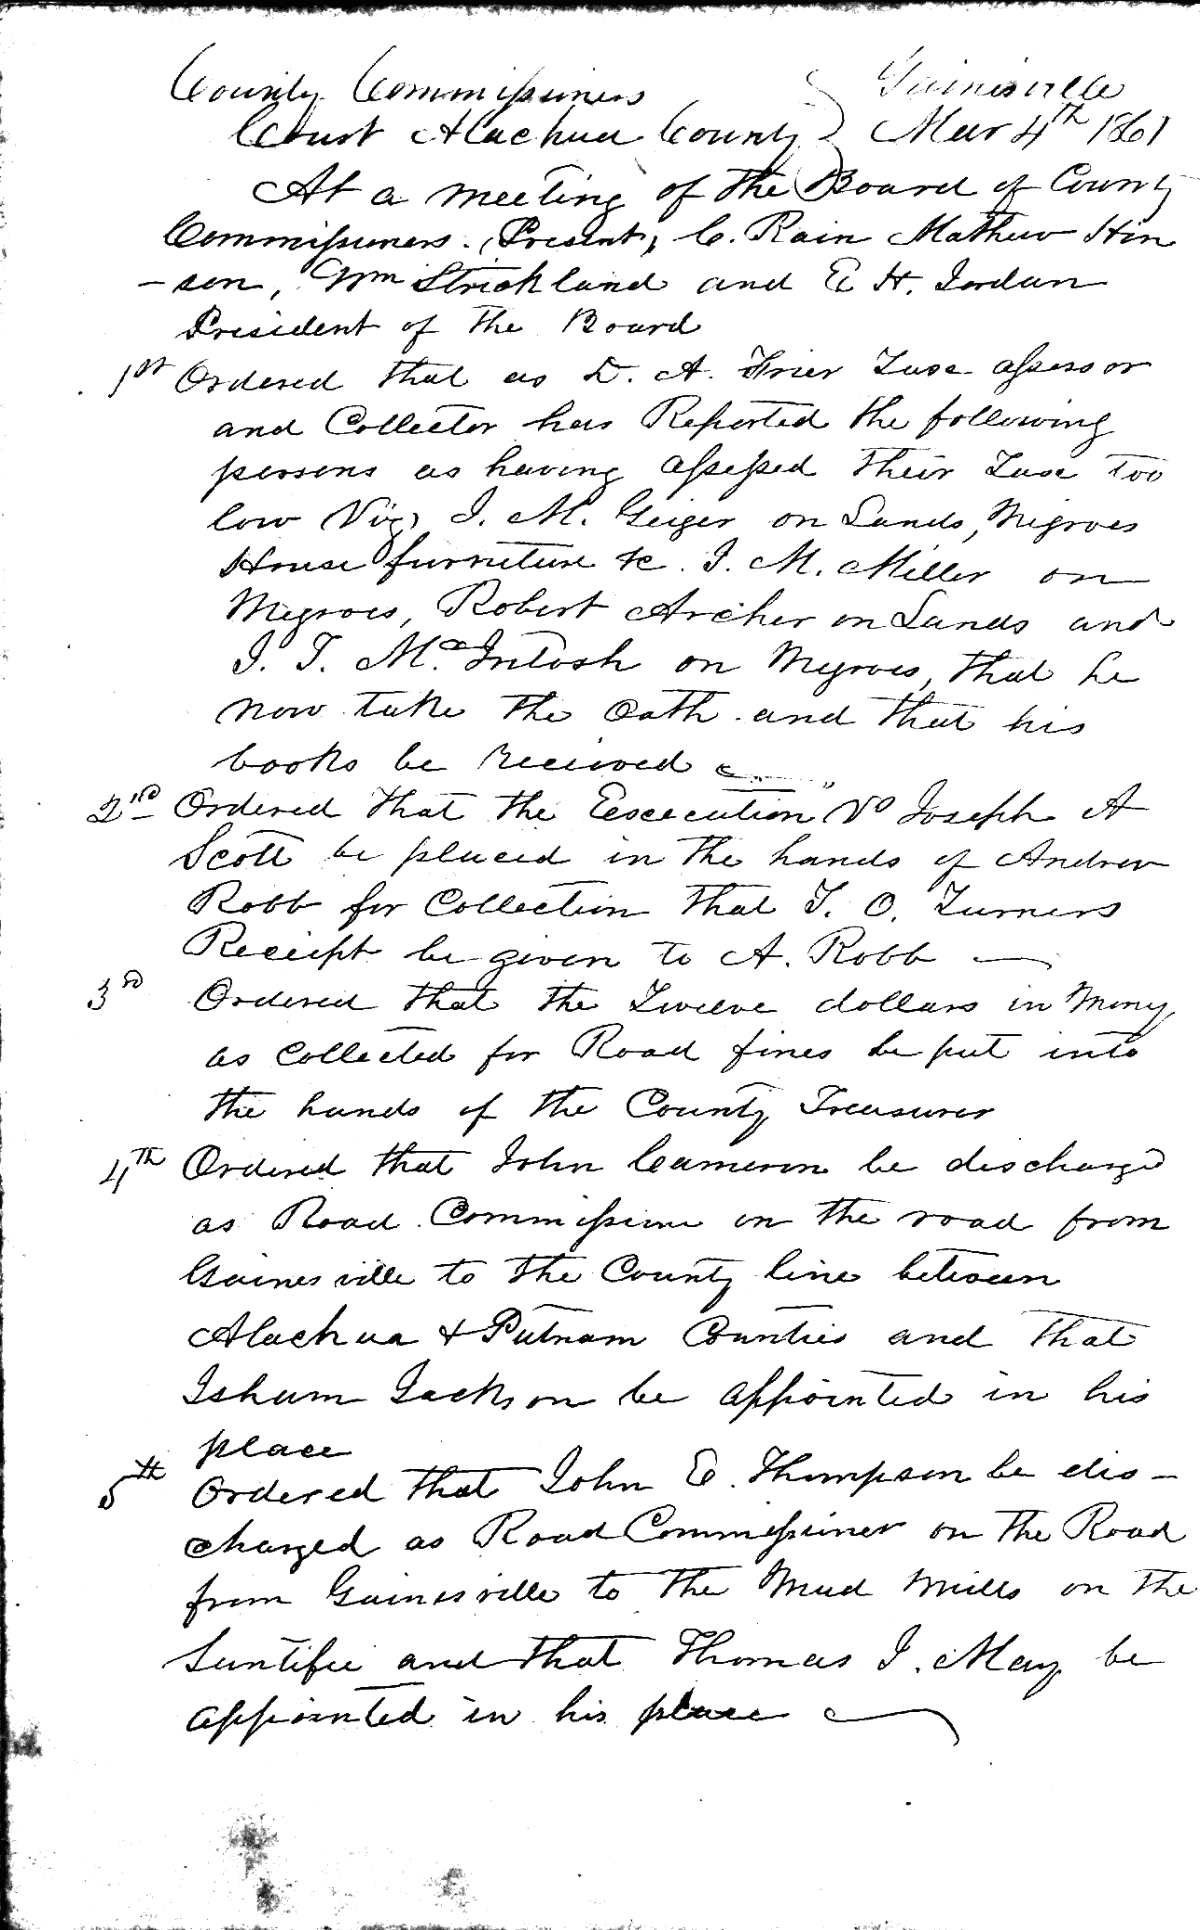 County Commissioners } Gainesville
Court Alachua County } Mar 4th 1861
At a meeting of the Board of County
Commissioners. Present, C. Rain Mathew Hin
- son, Wm Strickland and E H. Jordan
President of the Board
1st Ordered that as D. A. Frier Taxe assessor
and Collector has Reported the following
persons as having assessed their Taxe too
low Viz, J. M. Geiger on Lands, Negroes
House furniture &c. J. M. Miller on
Negroes, Robert Archer on Lands and
J. T. McIntosh on Negroes, that he
now take the Oath and that his
books be received
2nd Ordered that the Excecution Vs Joseph A
Scott be placed in the hands of Andrew
Robb for Collection that T. O. Turners
Receipt be given to A. Robb —
3rd Ordered that the Twelve dollars in Mony
as Collected for Road fines be put into
the hands of the County Treasurer
4th Ordered that John Cameron be discharged
as Road Commissione on the road from
Gainesville to the County line between
Alachua & Putnam Counties and that
Ishum Jackson be appointed in his
place
5th Ordered that John E. Thompson be dis -
charged as Road Commissioner on the Road
from Gainesville to the Mud Mills on the
Suntifee and that Thomas J. May be
appointed in his place